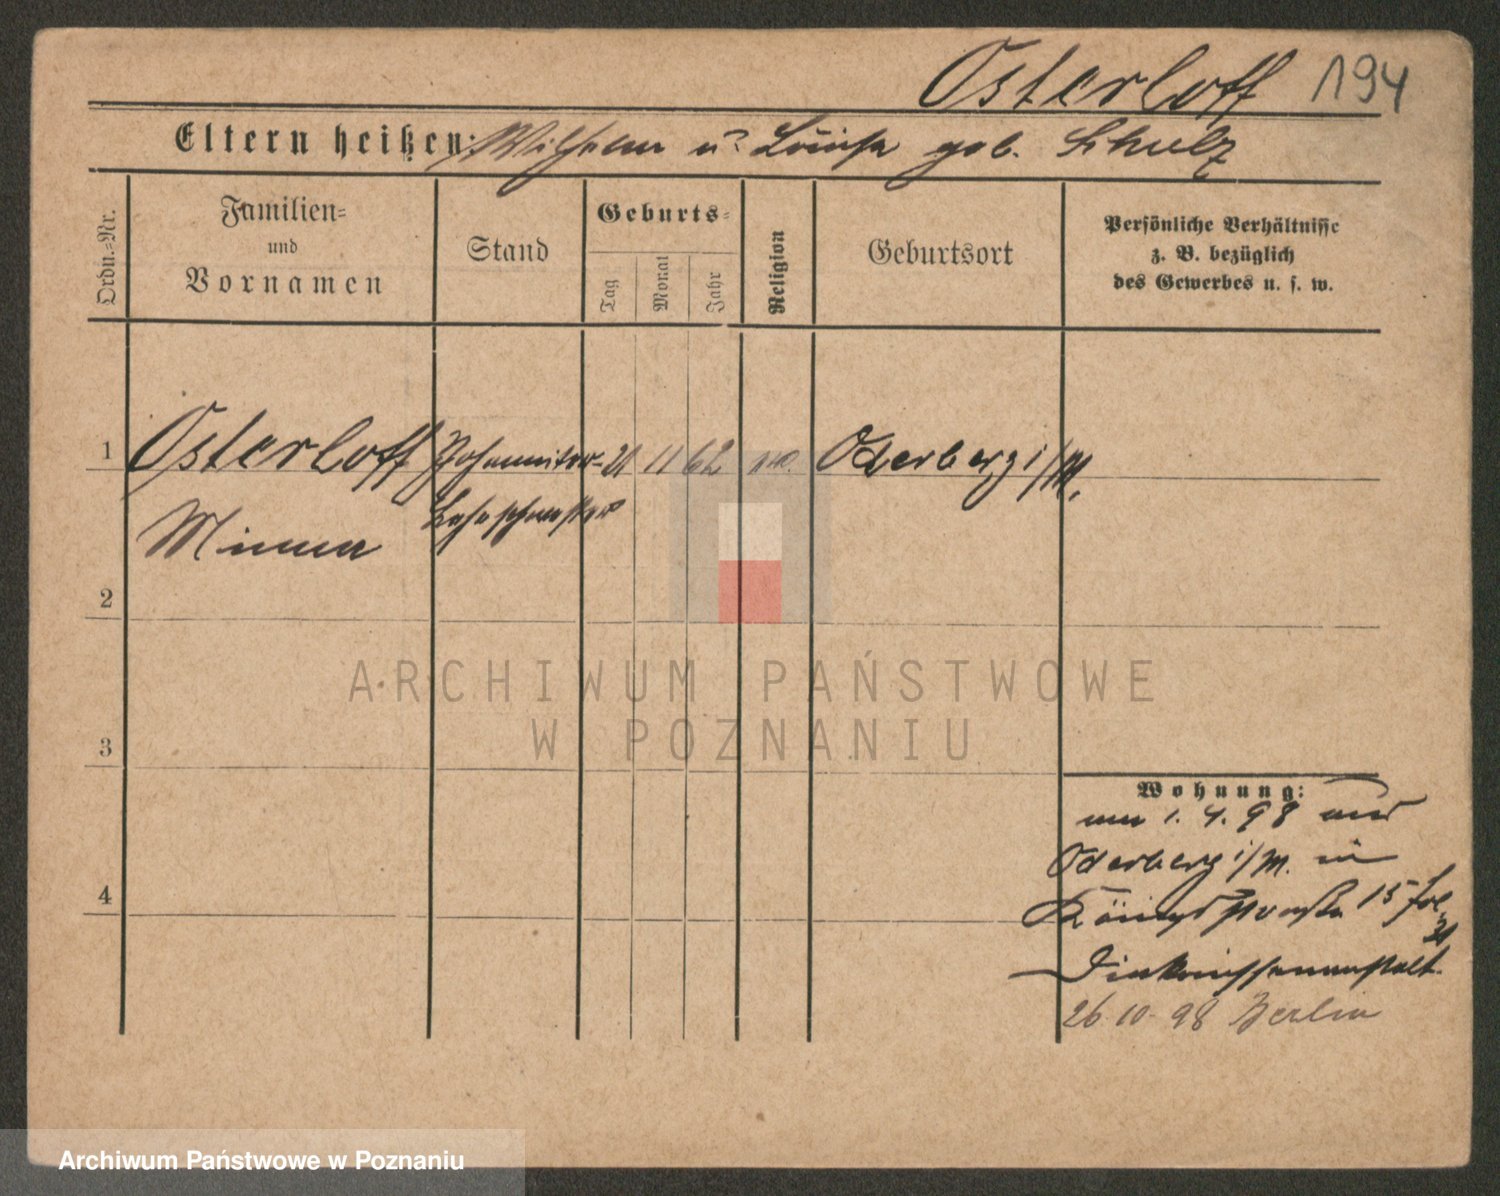 Osterloff 194
Eltern heißen: Wilhelm u. Louise geb. Schulz
Ordn.=Nr.
Familien=
und
Vornamen
Stand
Geburts=
Tag
Monat
Jahr
Religion
Geburtsort
Persönliche Verhältnisse
z. B. bezüglich
des Gewerbes u. s. w.
1
Osterloff Johanniter- 21 11 62 Oderberg i/M.
Minna Lehrschwester
2
3
4
ARCHIWUM PAŃSTWOWE
W POZNANIU
Wohnung:
1. 4. 98
Oderberg i/M. in
Königsstraße 15
Diakonissenanstalt.
26 10 98 Berlin
Archiwum Państwowe w Poznaniu